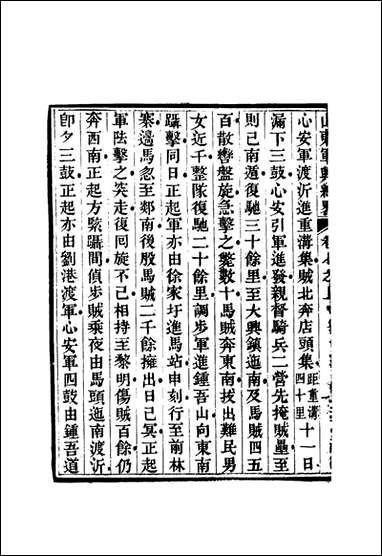 山東軍興紀略 卷七之上
心安軍渡沂進重溝集賊北奔店頭集距重溝四十里十一日
漏下三鼓心安引軍進發親督騎兵二營先掩賊壘至
則已南遁復馳三十餘里至大興鎮迤南及馬賊四五
百散轡盤旋急擊之斃數十馬賊奔東南拔出難民男
女近千整隊復馳二十餘里調步軍進鍾吾山向東南
躡擊同日正起軍亦由徐家圩進馬站申刻行至前林
寨邊馬忽至郯南後股馬賊二千餘擁出日已冥正起
軍陡擊之突走復回旋不已相持至黎明傷賊百餘仍
奔西南正起方緊躡間偵步賊乘夜由馬頭迤南渡沂
卽夕三鼓正起亦由劉港渡軍心安軍四鼓由鍾吾道